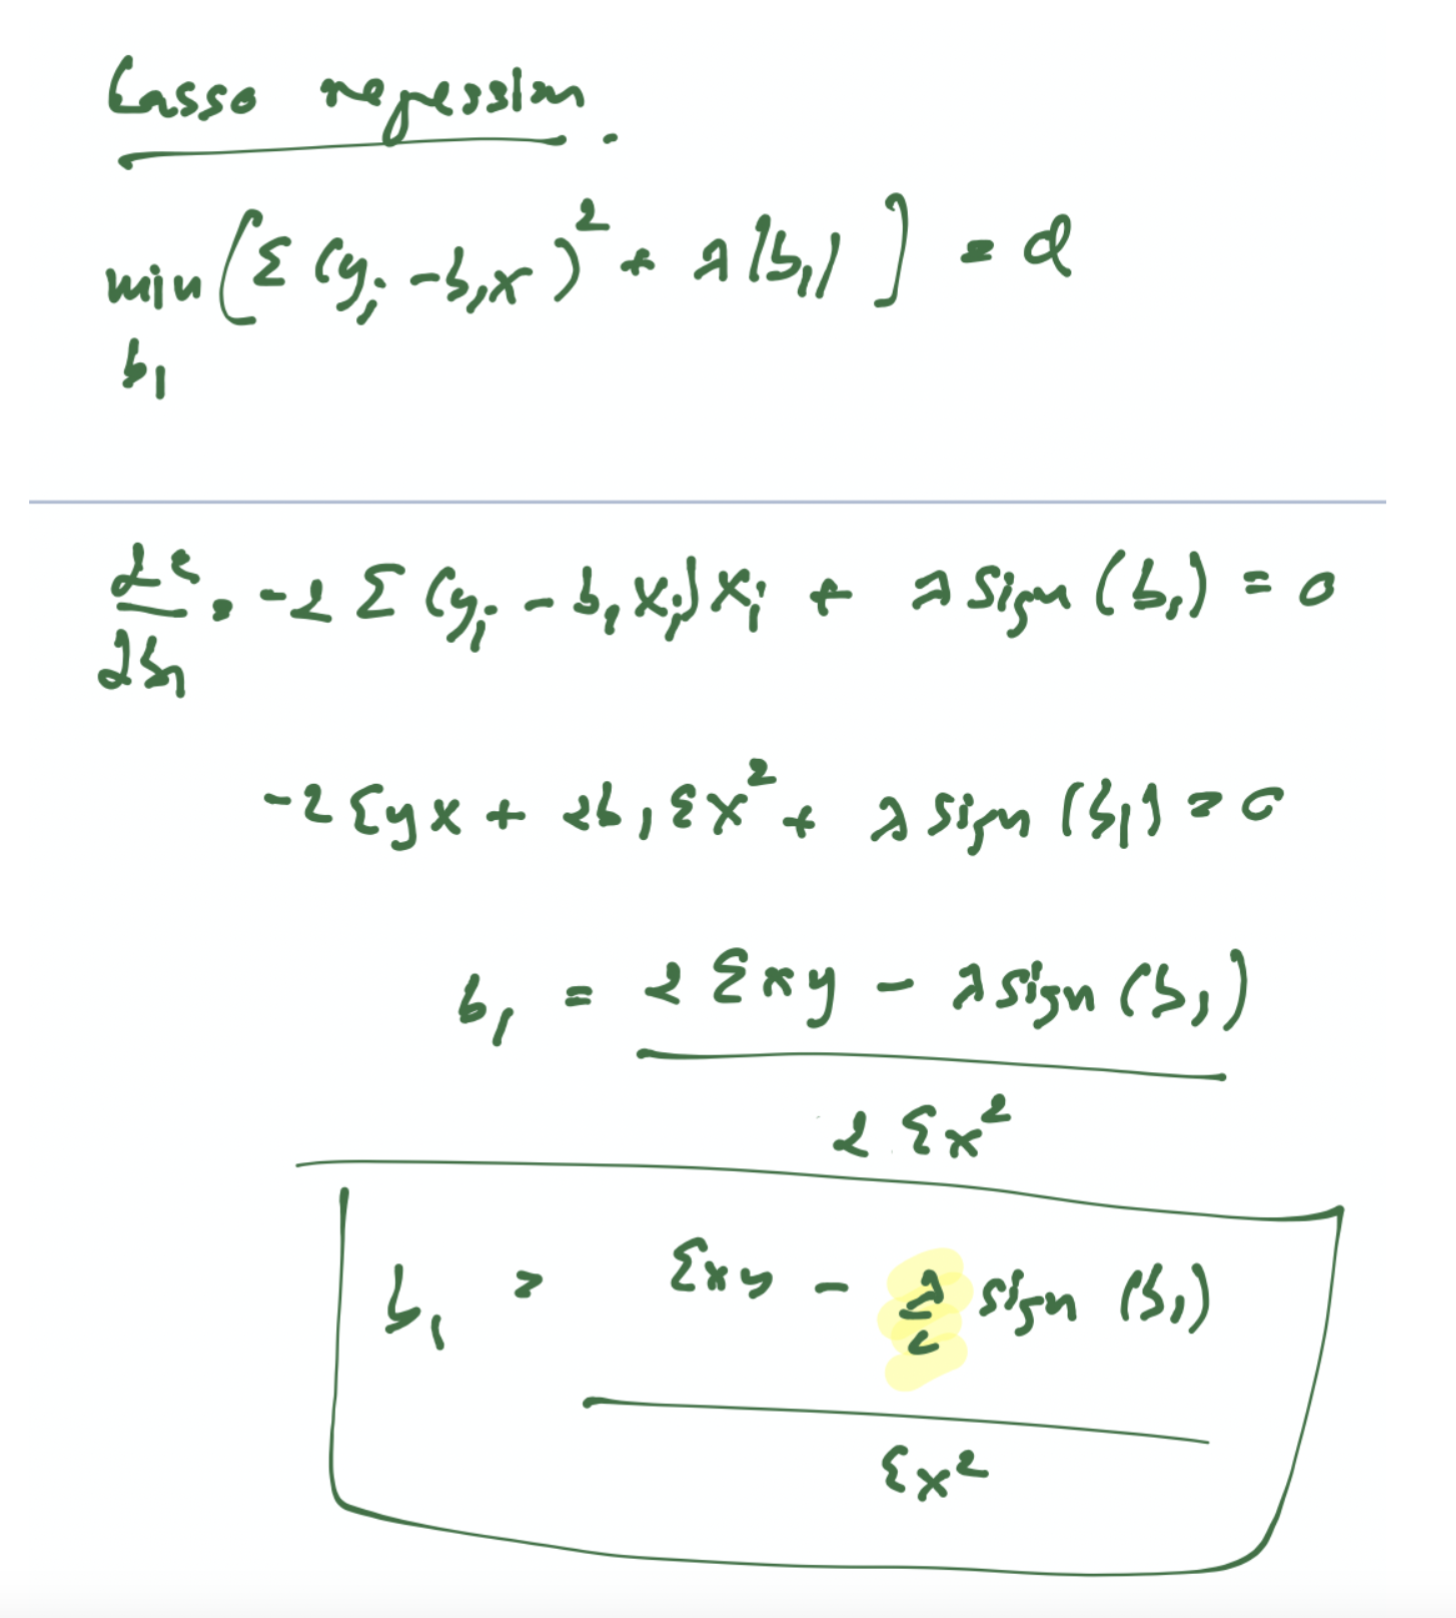 Lasso regression.
min [Σ(yi - b1x)² + λ|b1|] = l
b1
∂e/∂b1 = -2 Σ(yi - b1xi)xi + λ sign(b1) = 0
-2Σyx + 2b1Σx² + λ sign(b1) = 0
b1 = 2Σxy - λ sign(b1)
2Σx²
b1 = Σxy - λ/2 sign(b1)
Σx²